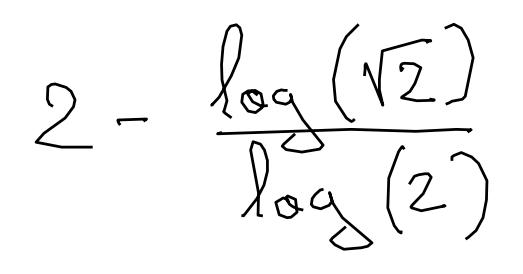 2 - \frac{log(√2)}{log(2)}